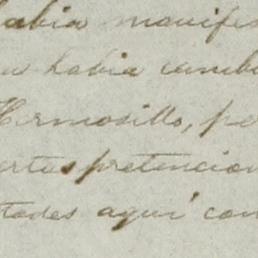 habia manifes
habia cambi
Hermosillo, pe
ertus pretencion
tades aquí con